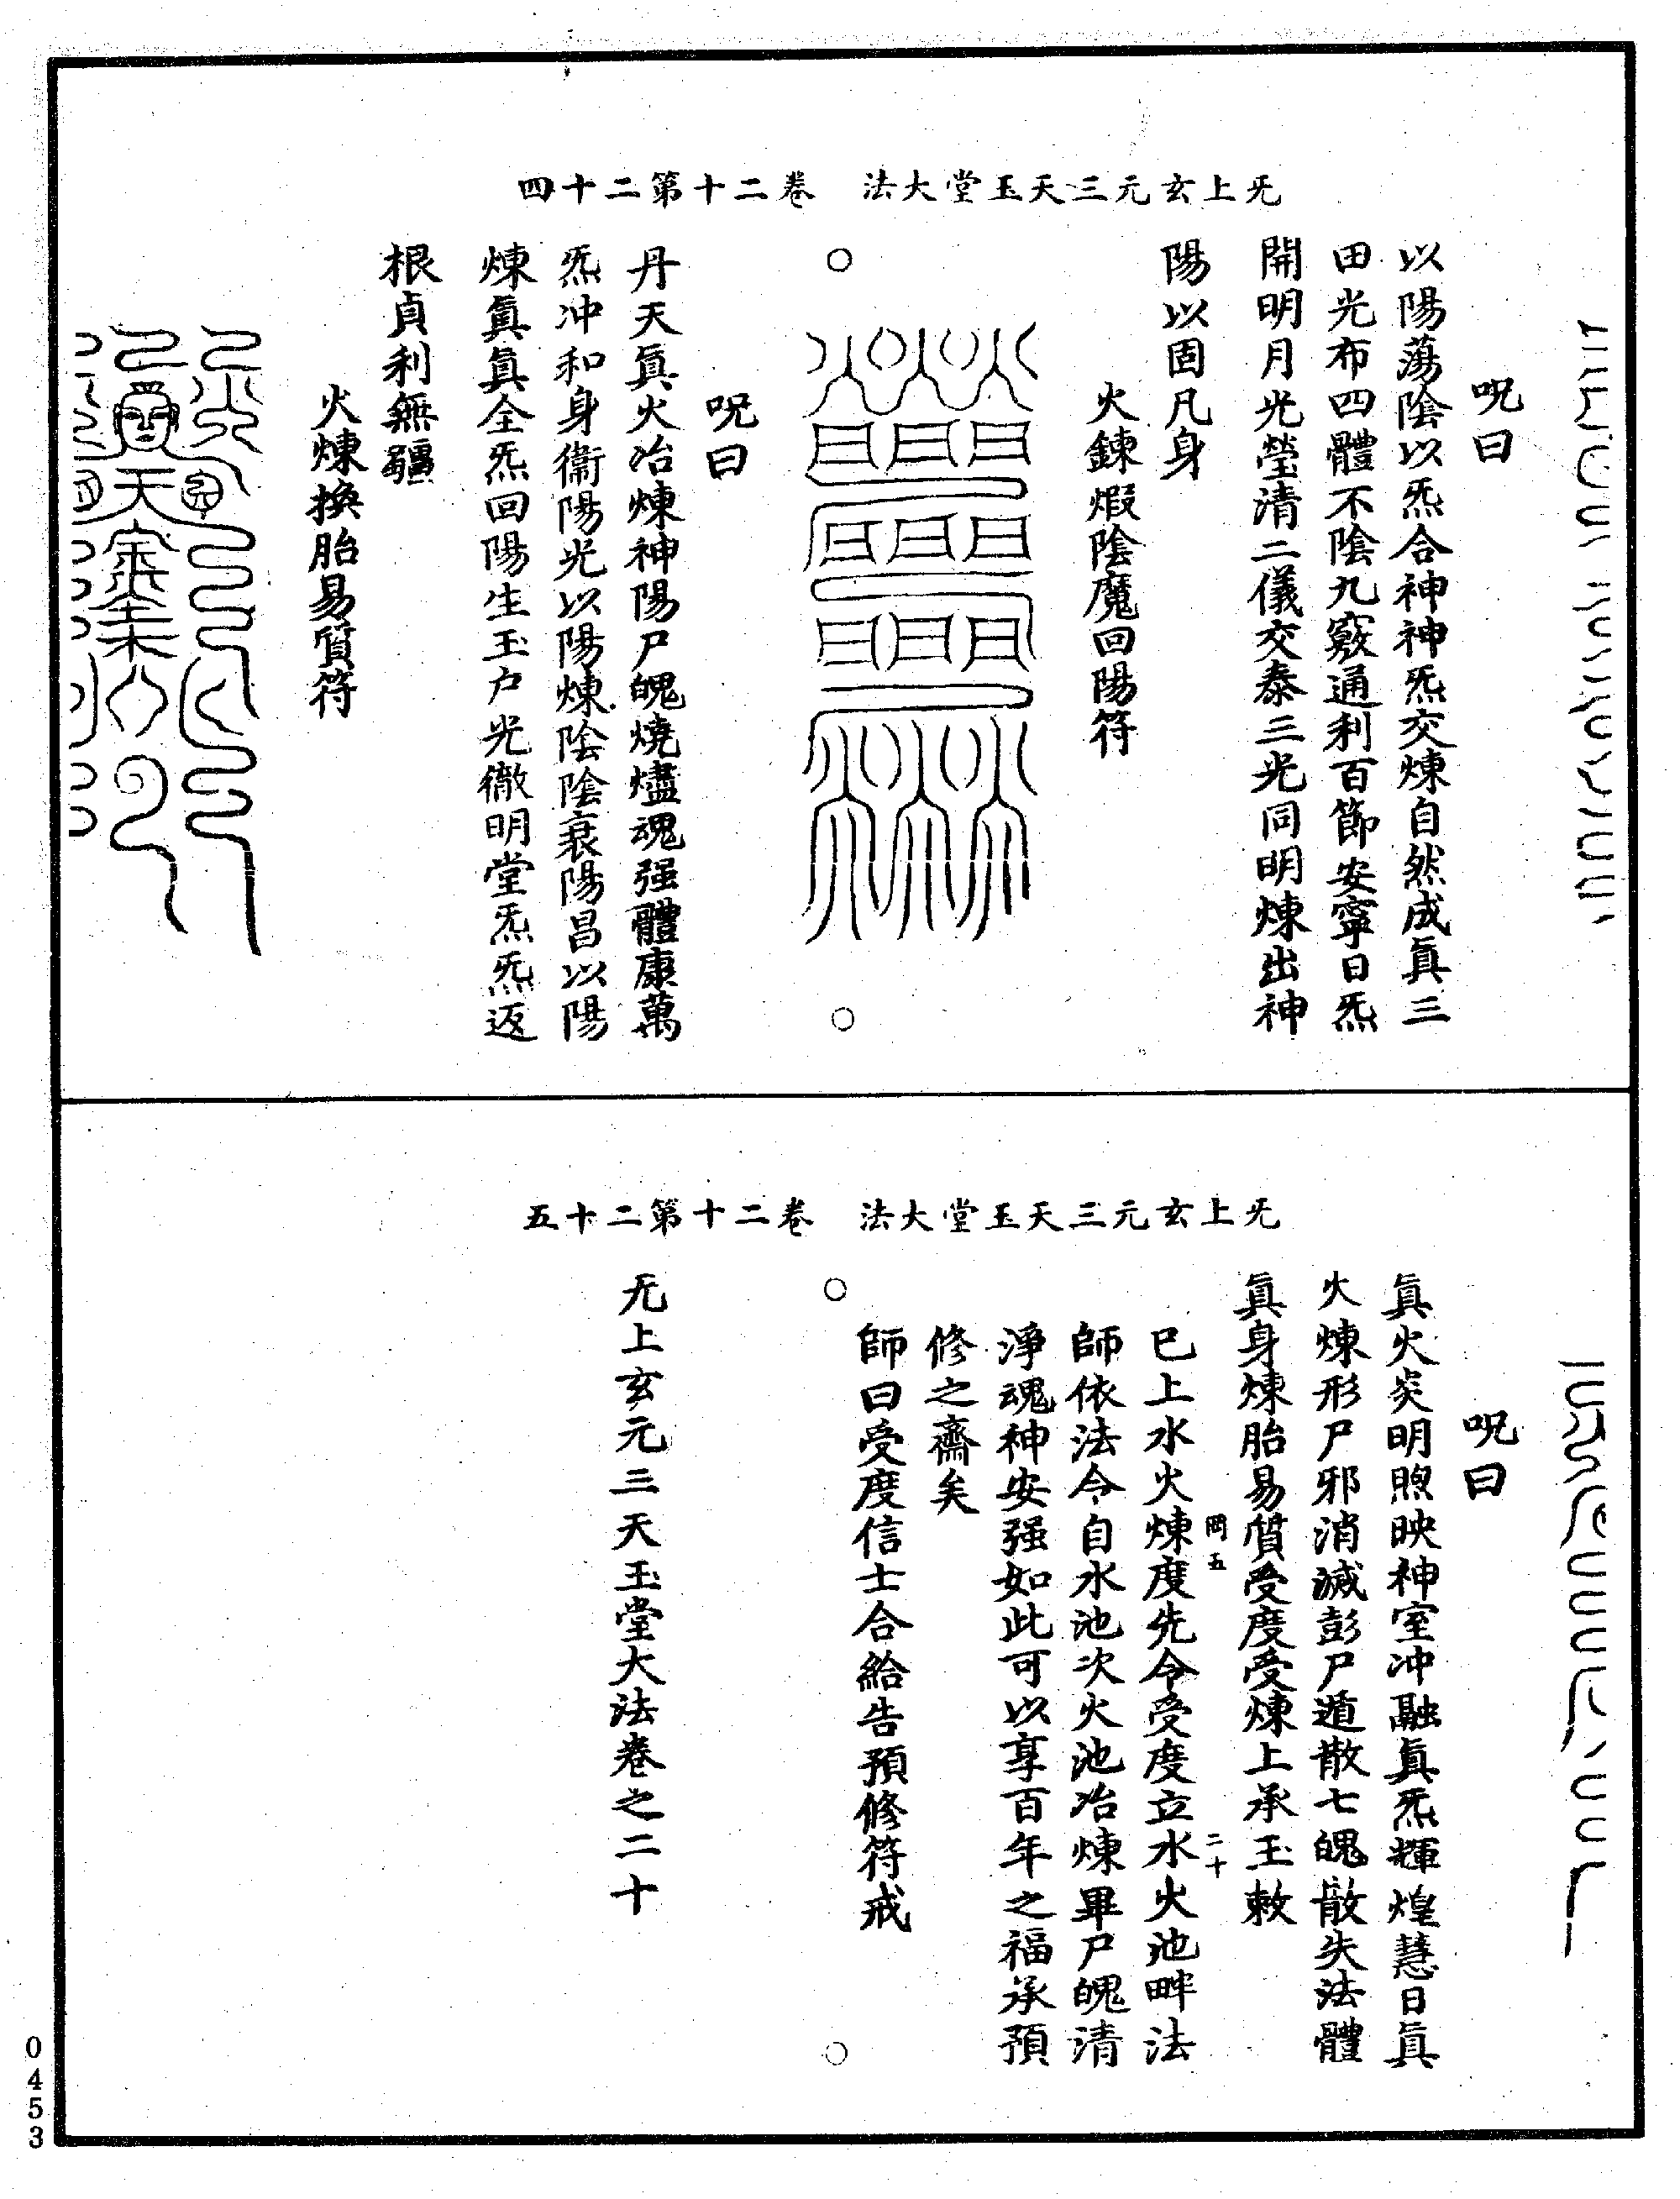 无上玄元三天玉堂大法　卷二十第二十四
呪曰
以陽蕩陰以炁合神神炁交煉自然成真三
田光布四體不陰九竅通利百節安寧日炁
開明月光瑩清二儀交泰三光同明煉出神
陽以固凡身
火鍊煅陰魔回陽符
呪曰
丹天真火冶煉神陽尸魄燒燼魂强體康萬
炁冲和身衞陽光以陽煉陰陰衰陽昌以陽
煉真真全炁回陽生玉户光徹明堂炁炁返
根貞利無疆
火煉換胎易質符
无上玄元三天玉堂大法　卷二十第二十五
呪曰
真火炎明煦映神室冲融真炁輝煌慧日真
火煉形尸邪消滅彭尸遁散七魄散失法體
真身煉胎易質受度受煉上承玉敕
岡五　二十
已上水火煉度先令受度立水火池畔法
師依法令自水池次火池冶煉畢尸魄清
淨魂神安强如此可以享百年之福承預
修之齋矣
師曰受度信士合給告預修符戒
无上玄元三天玉堂大法卷之二十
0453